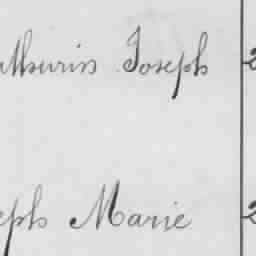 athurin Joseph 2
eph Marie 2